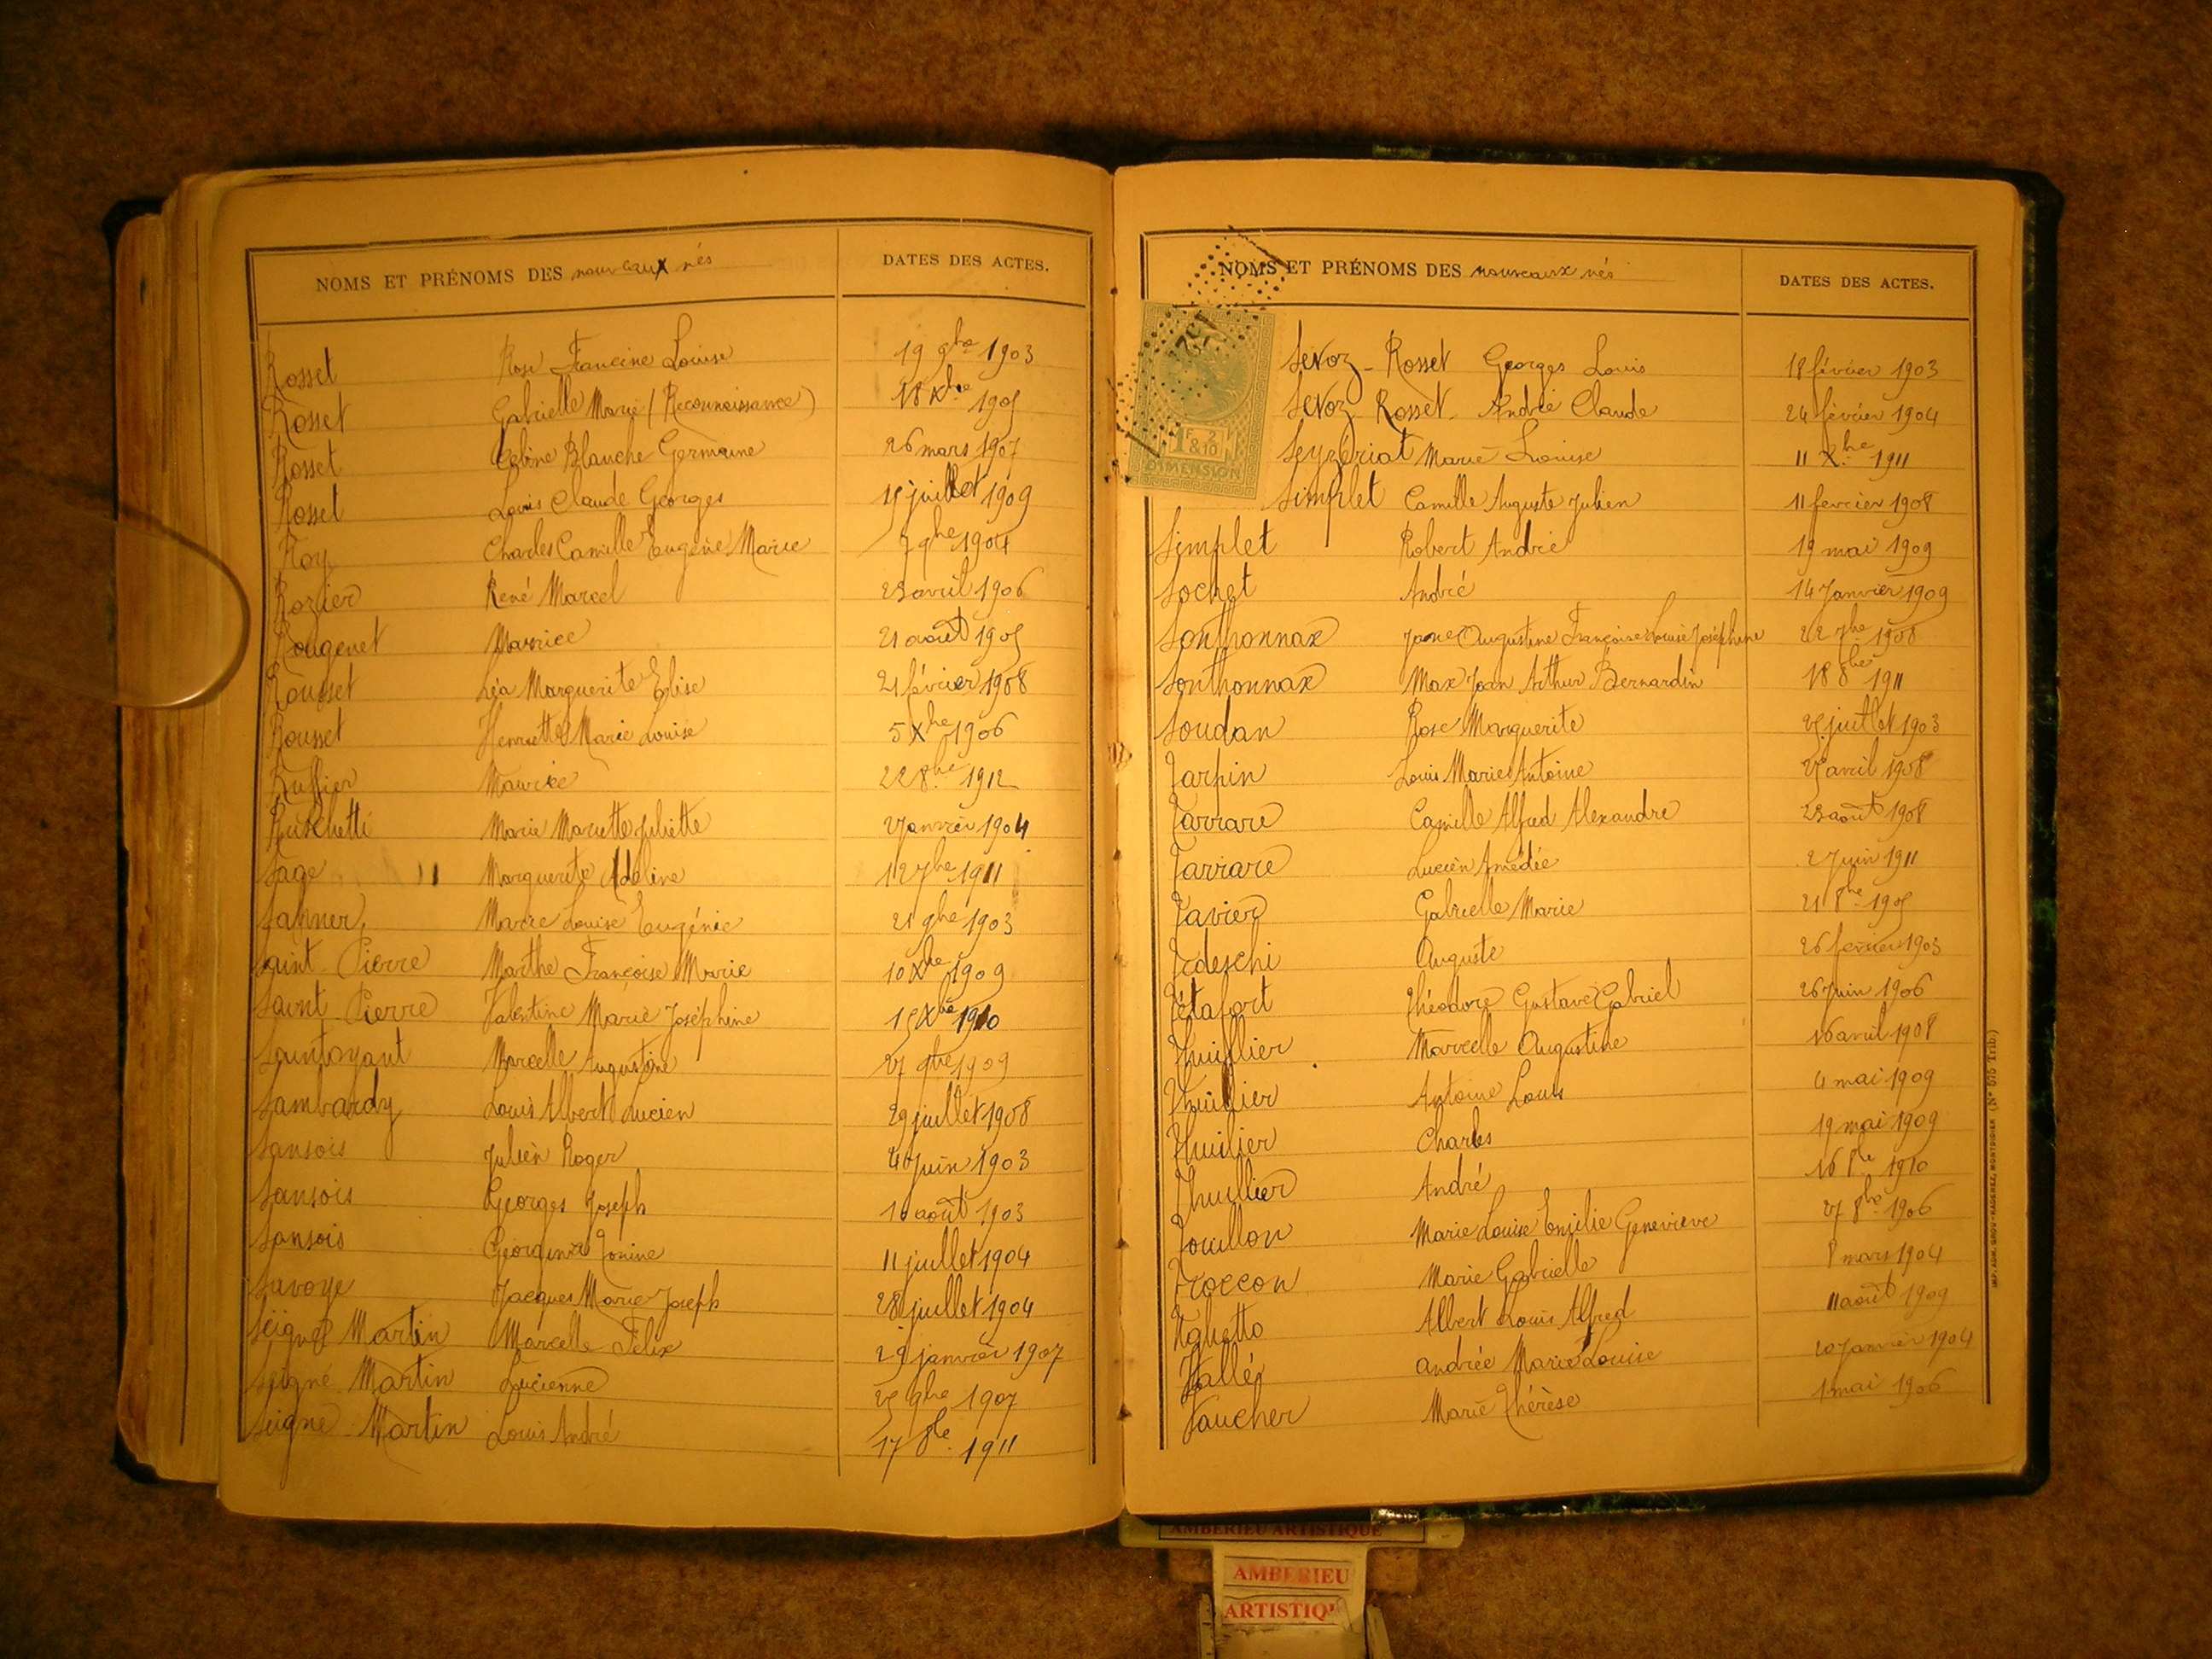 NOMS ET PRÉNOMS DES nouveaux nés DATES DES ACTES.
Rosset Rose Francine Louise 19 9bre 1903
Rosset Gabrielle Marie (Reconnaissance) 18 Xbre 1905
Rosset Celine Blanche Germaine 26 mars 1907
Rosset Louis Claude Georges 15 juillet 1909
Roy Charles Camille Eugène Marie 7 9bre 1904
Rozier René Marcel 23 avril 1906
Rougenet Maurice 21 août 1905
Rousset Léa Marguerite Elise 21 février 1908
Rousset Henriette Marie Louise 5 Xbre 1906
Ruffier Maurice 22 8bre 1912
Ruschetti Marie Mariette Juliette Janvier 1904
Sage Marguerite Adeline 12 7bre 1911
Sahner Marie Louise Eugénie 21 9bre 1903
Saint Pierre Marthe Françoise Marie 10 Xbre 1909
Saint Pierre Valentine Marie Joséphine 15 Xbre 1910
Saintoyant Marcelle Augustine 27 9bre 1909
Sambardy Louis Albert Lucien 29 juillet 1908
Sansois Julien Roger 4 Juin 1903
Sansois Georges Joseph août 1903
Sansois Georgina 11 juillet 1904
Savoye Jacques Marie Joseph 28 juillet 1904
Seigne Martin Marcelle Felix 29 janvier 1907
Seigne Martin Lucienne 25 9bre 1907
Seigne Martin Louis André 17 8bre 1911
NOMS ET PRÉNOMS DES nouveaux nés DATES DES ACTES.
1F 2 & 10
DIMENSION
Sevoz-Rosset Georges Louis 18 février 1903
Sevoz Rosset André Claude 24 février 1904
Seyzériat Marie Louise 11 Xbre 1911
Simplet Camille Auguste Julien 11 fevrier 1908
Simplet Robert André 19 mai 1909
Sochet André 14 Janvier 1909
Sonthonnax Jane Augustine Françoise Louise Joséphine 22 7bre 1908
Sonthonnax Max Jean Arthur Bernardin 18 8bre 1911
Soudan Rose Marguerite 25 juillet 1903
Tarpin Louis Marie Antoine 25 avril 1908
Tarrare Camille Alfred Alexandre 23 août 1908
Tarrare Lucien Amédée 2 Juin 1911
Tavier Gabrielle Marie 21 8bre 1905
Tedeschi Auguste 26 fevrier 1903
Tétafort Théodore Gustave Gabriel 26 Juin 1906
Thuillier Marcelle Augustine 16 avril 1908
Thuilier Antoine Louis 4 mai 1909
Thuilier Charles 19 mai 1909
Thuillier André 16 8bre 1910
Touillon Marie Louise Emilie Genevieve 27 8bre 1906
Troccon Marie Gabrielle 8 mars 1904
Ughetto Albert Louis Alfred 11 août 1909
Vallé Andrée Marie Louise 20 Janvier 1904
Vaucher Marie Thérèse 1 mai 1906
AMBERIEU ARTISTIQUE
AMBERIEU
ARTISTIQ